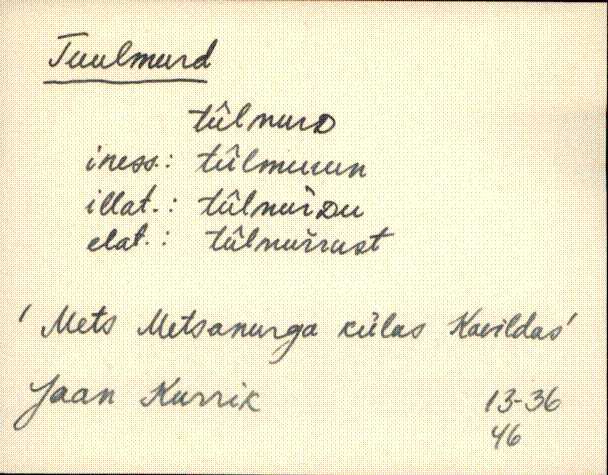 Tuulmurd
tûlmurD
iness.: tûlmuuun
illat.: tûlmuřDu
elat.: tûlmuřrust
'Mets Metsanurga külas Kavildas'
Jaan Kurrik 13-36
46